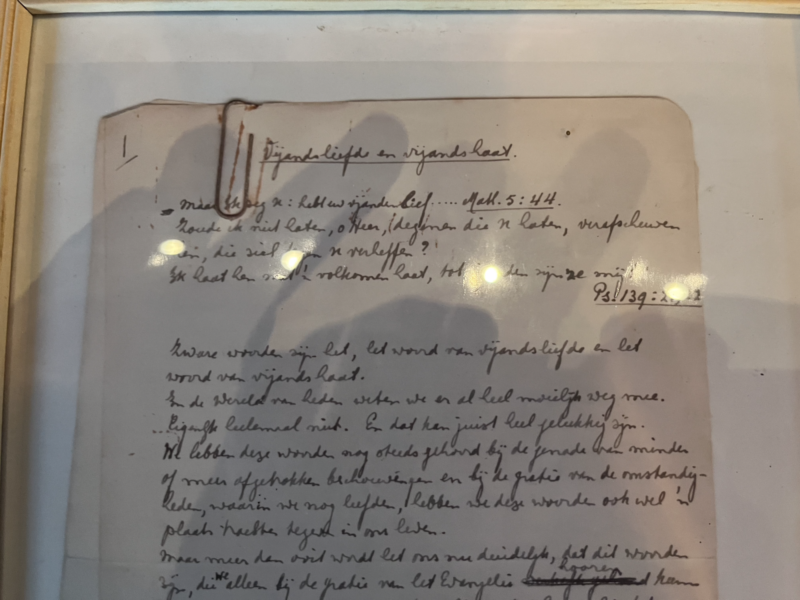 1
Vijandsliefde en vijandshaat.
Maar ik zeg u: hebt uw vijanden lief ..... Math. 5:44.
Zoude ik niet haten, o Heer, degenen die U haten, verafschuwen
hen, die zich tegen U verheffen?
Ik haat hen met 'n volkomen haat, tot zijn ze mij!
Ps. 139:
Zware woorden zijn het, het woord van vijandsliefde en het
woord van vijandshaat.
En de wereld van heden weten we er al heel moeilijk weg mee.
Eigenlijk heelemaal niet. En dat kan juist heel gelukkig zijn.
We hebben deze woorden nog steeds gehoord bij de genade van minder
of meer afgetrokken beschouwingen en bij de gratie van de omstandig-
heden, waarin we nog leefden, hebben we deze woorden ook wel 'n
plaats trachten te geven in ons leven.
Maar meer dan ooit wordt het ons nu duidelijk, dat dit woorden
zijn, die we alleen bij de gratie van het Evangelie hooren kunn